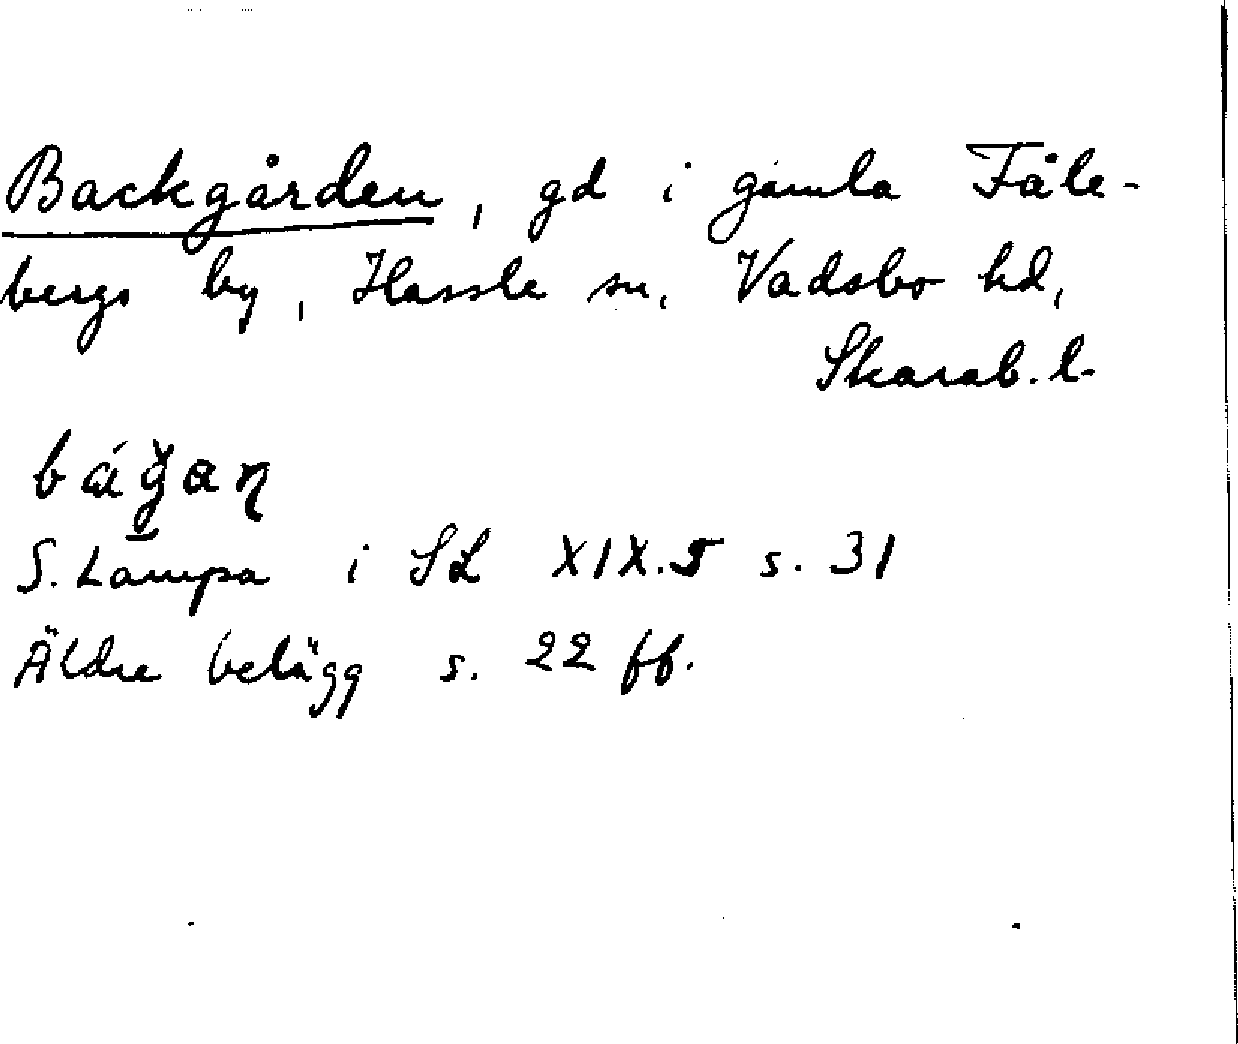 Backgården, gd i gamla Fåle-
bergs by, Hassle sn, Vadsbo hd,
Skarab. l.
S. Lampa i SL XIX.5 s. 31
Äldre belägg s. 22 ff.